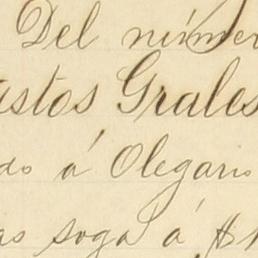 Del númer
astos Grales
do á Olegario
as soga á $1